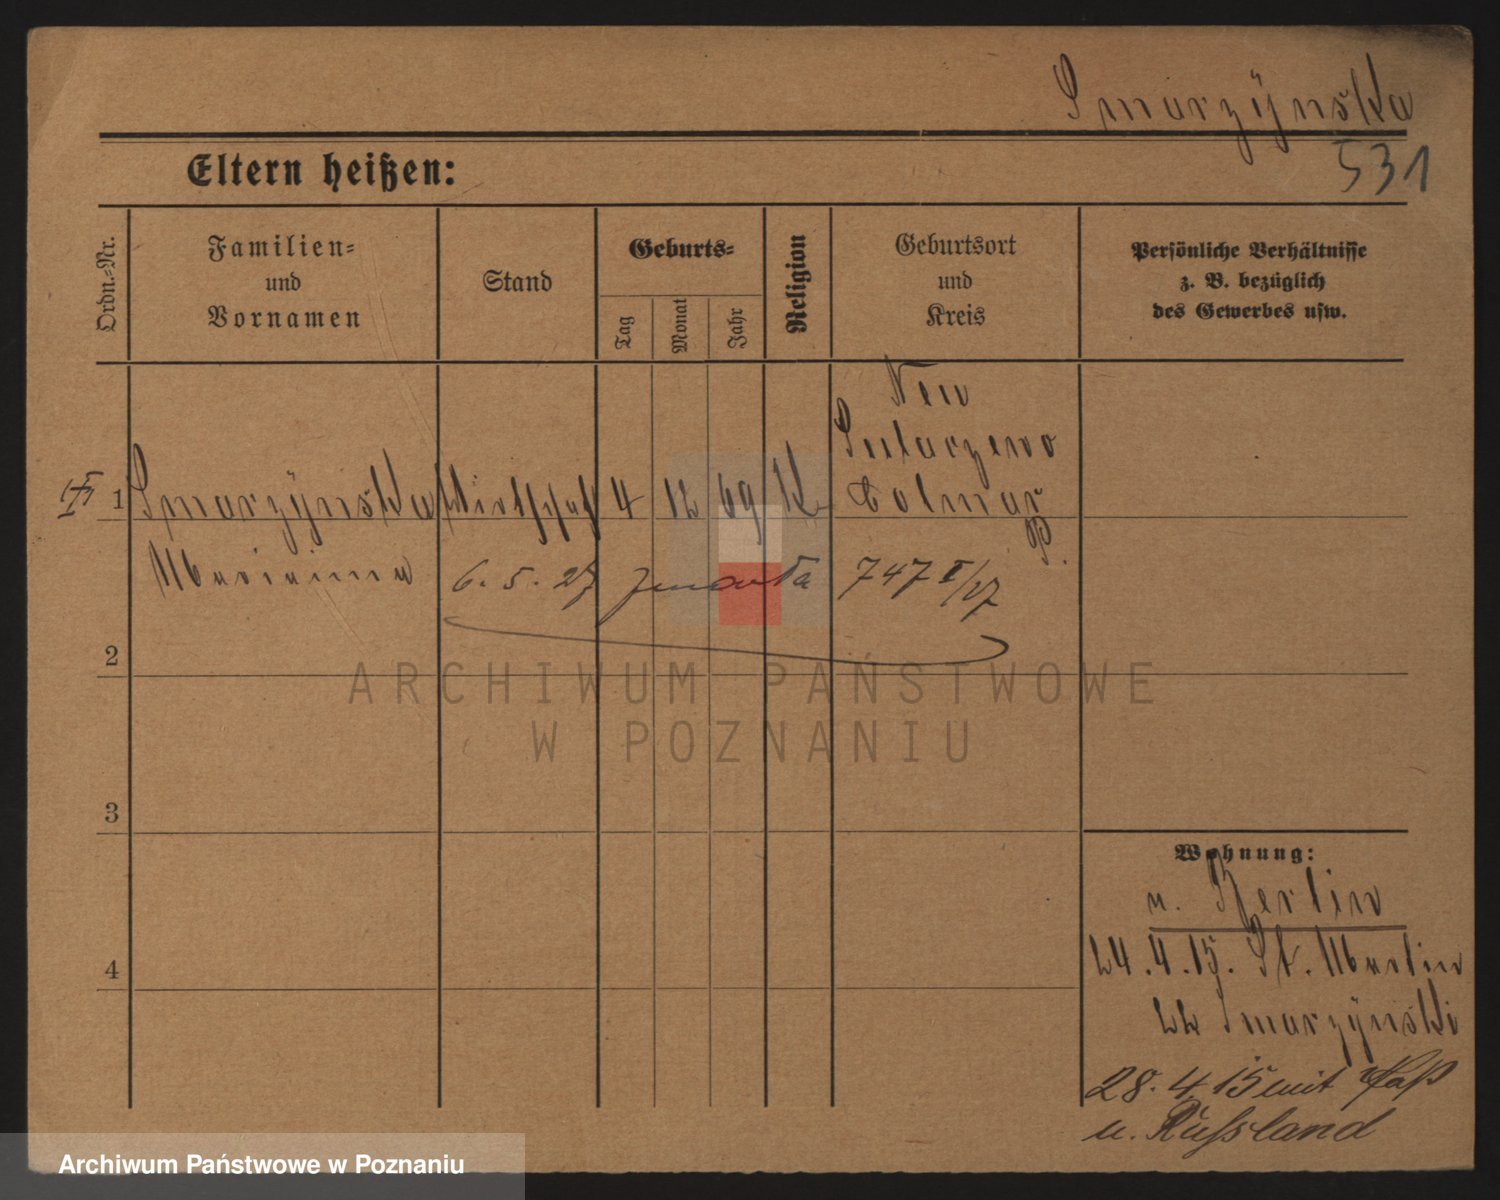 Smarzÿnska
531
Eltern heißen:
Ordn.-Nr.
Familien-
und
Vornamen
Stand
Geburts-
Tag
Monat
Jahr
Religion
Geburtsort
und
Kreis
Persönliche Verhältnisse
z. B. bezüglich
des Gewerbes usw.
Neu
1 Smarzÿnska Wirtschaf 4 12 69 K
Colmar
P.
Marianna
6. 5. 27 zmarła 747 I/27
2
3
4
Wohnung:
n. Berlin
24.4.15. St. Martin
22 Smarzÿnski
28. 4. 15 mit Paß
n. Russland
ARCHIWUM PAŃSTWOWE
W POZNANIU
Archiwum Państwowe w Poznaniu